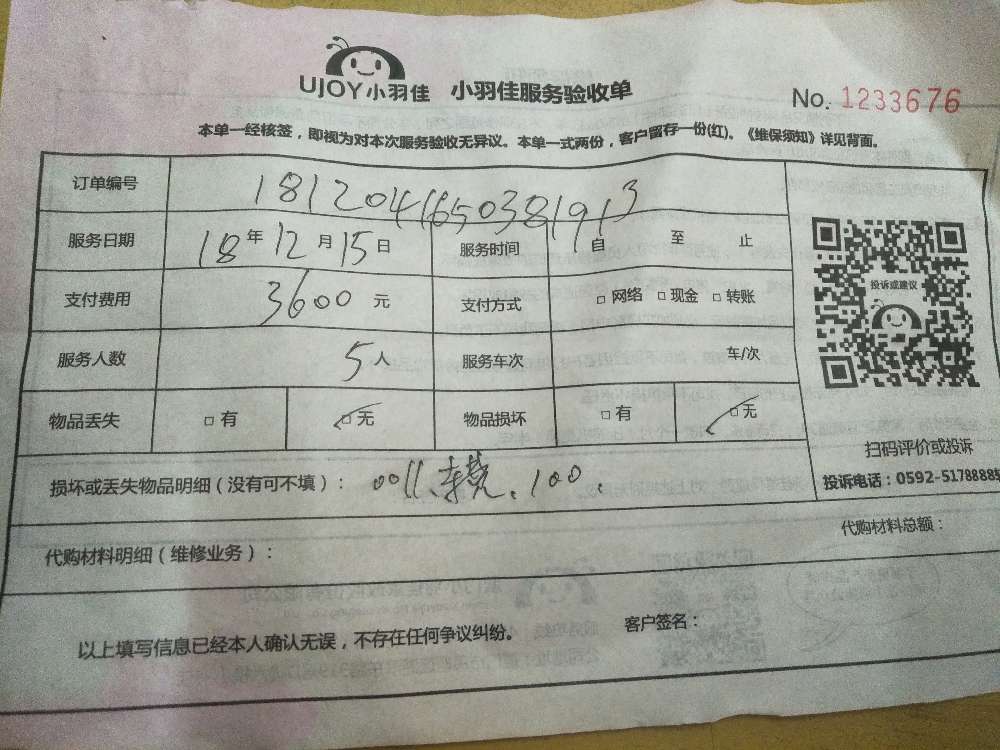 UJOY小羽佳 小羽佳服务验收单 No. 1233676
本单一经核签，即视为对本次服务验收无异议。本单一式两份，客户留存一份(红)。《维保须知》详见背面。
订单编号 181204165038193
服务日期 18年12月15日 服务时间 自 至 止
支付费用 3600元 支付方式 □网络 □现金 □转账
服务人数 5人 服务车次 车/次
物品丢失 □有 □无 物品损坏 □有 □无
投诉或建议
扫码评价或投诉
投诉电话：0592-5178888
损坏或丢失物品明细（没有可不填）： 0011、 100、
代购材料明细（维修业务）： 代购材料总额：
以上填写信息已经本人确认无误，不存在任何争议纠纷。 客户签名：